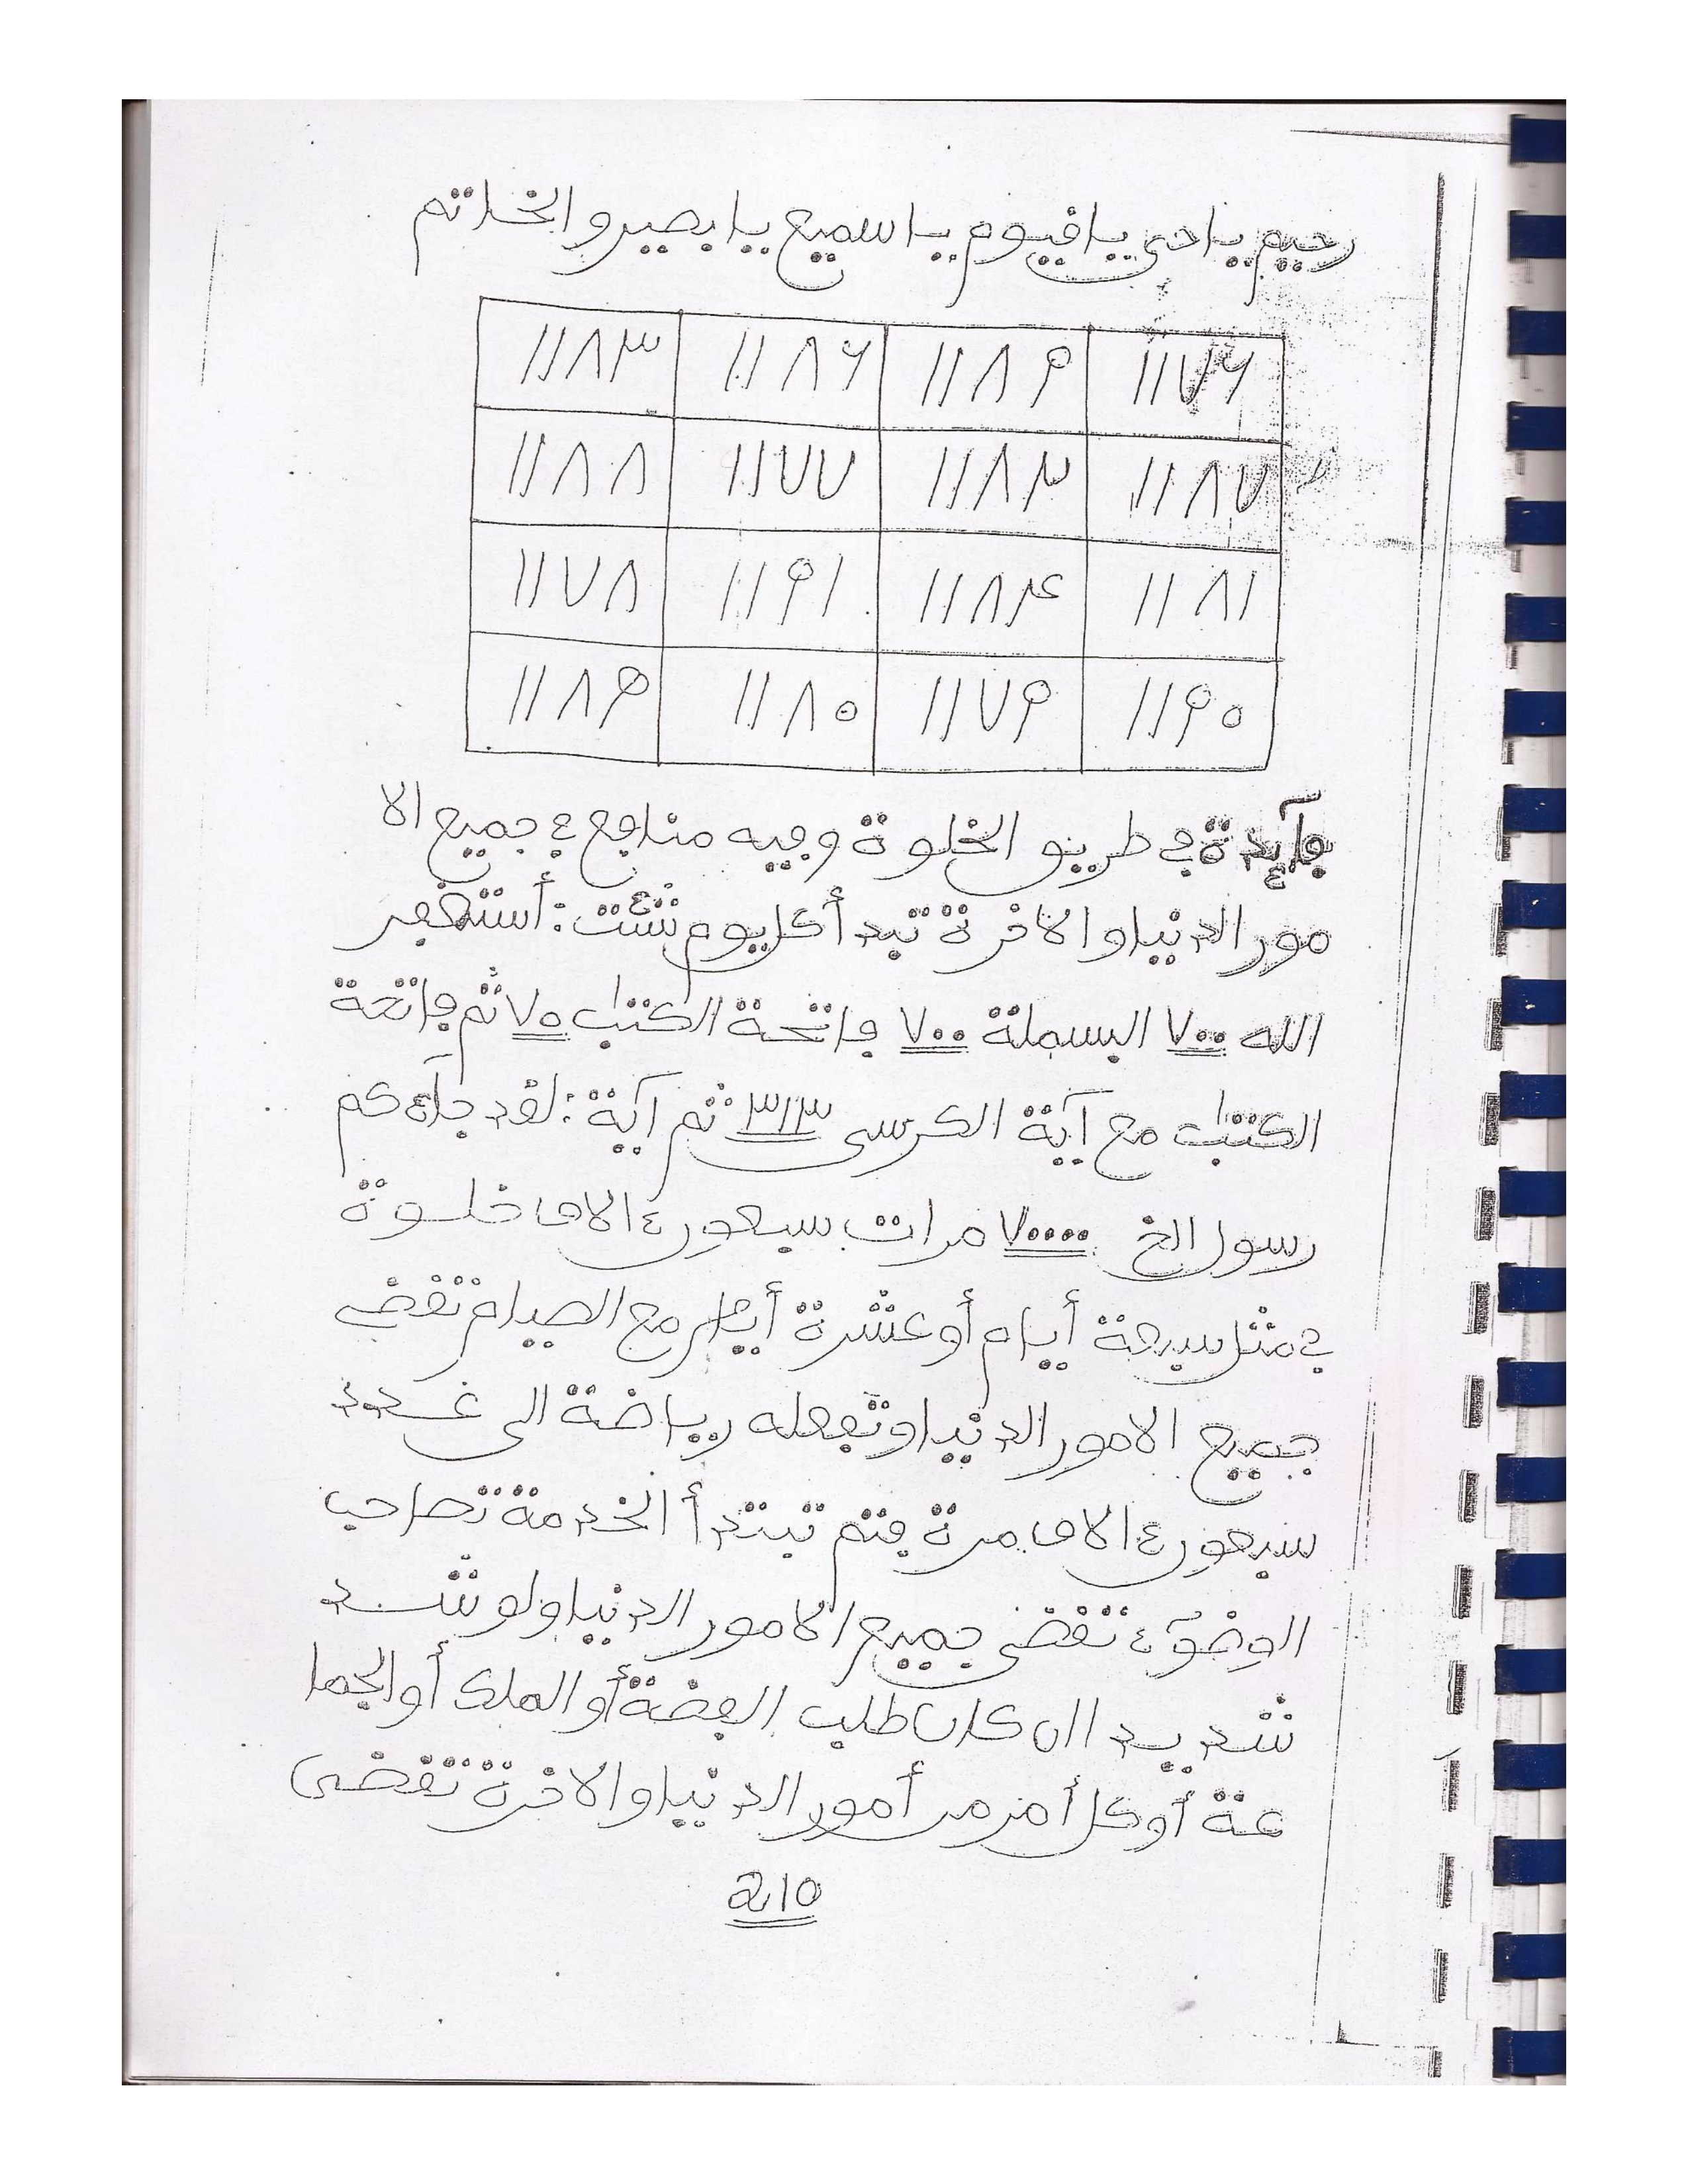 رحيم ياحي ياقيوم يا سميع يا بصير والخاتم
١١٨٣ ١١٨٦ ١١٨٩ ١١٧٦
١١٨٨ ١١٧٧ ١١٨٣ ١١٨٧
١١٧٨ ١١٩١ ١١٨٤ ١١٨١
١١٨٩ ١١٨٠ ١١٧٩ ١١٩٠
فآئدة في طريق الخلوة وفيه منافع في جميع الا
مور الدنيا والاخرة تبدأ كل يوم شئت: أستغفر
الله ٧٠٠ البسملة ٧٠٠ فاتحة الكتب ٧٠ ثم فاتحة
الكتب مع آية الكرسى ٣١٣ ثم آية: لقد جآءكم
رسول الخ ٧٠٠٠٠ مرات سبعون ءالاف خلوة
في مثل سبعة أيام أو عشرة أيام مع الصيام تقضى
جميع الامور الدنيا وتجعله رياضة الى عدد
سبعون ءالاف مرة فتم تبتدأ الخدمة تصاحب
الوضوٓء تقضى جميع الامور الدنيا ولو شد
شديد ان كان طلب الفضة أو الملك أو الجما
عة أوكل أمر من أمور الدنيا والاخرة تقضى